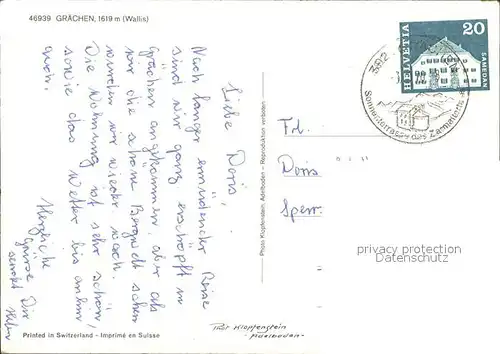 46939 GRÄCHEN, 1619 m (Wallis)
Liebe Doris,
Nach langer ermüdender Reise
sind wir ganz erschöpft in
Grächen angekommen, aber als
wir die schöne Bergwelt sahen
wurden wir wieder wach.
Die Wohnung ist sehr schön,
sowie das Wetter bis anhin,
Herzliche
Grüsse Dir
sendet
Printed in Switzerland - Imprimé en Suisse
Photo Klopfenstein, Adelboden - Reproduction verboten
HELVETIA
20
SAMEDAN
Sonnenterrasse des Zermattertals
Frl.
Doris
Sperr
privacy protection
DATENSCHUTZ
Klopfenstein
- Adelboden -